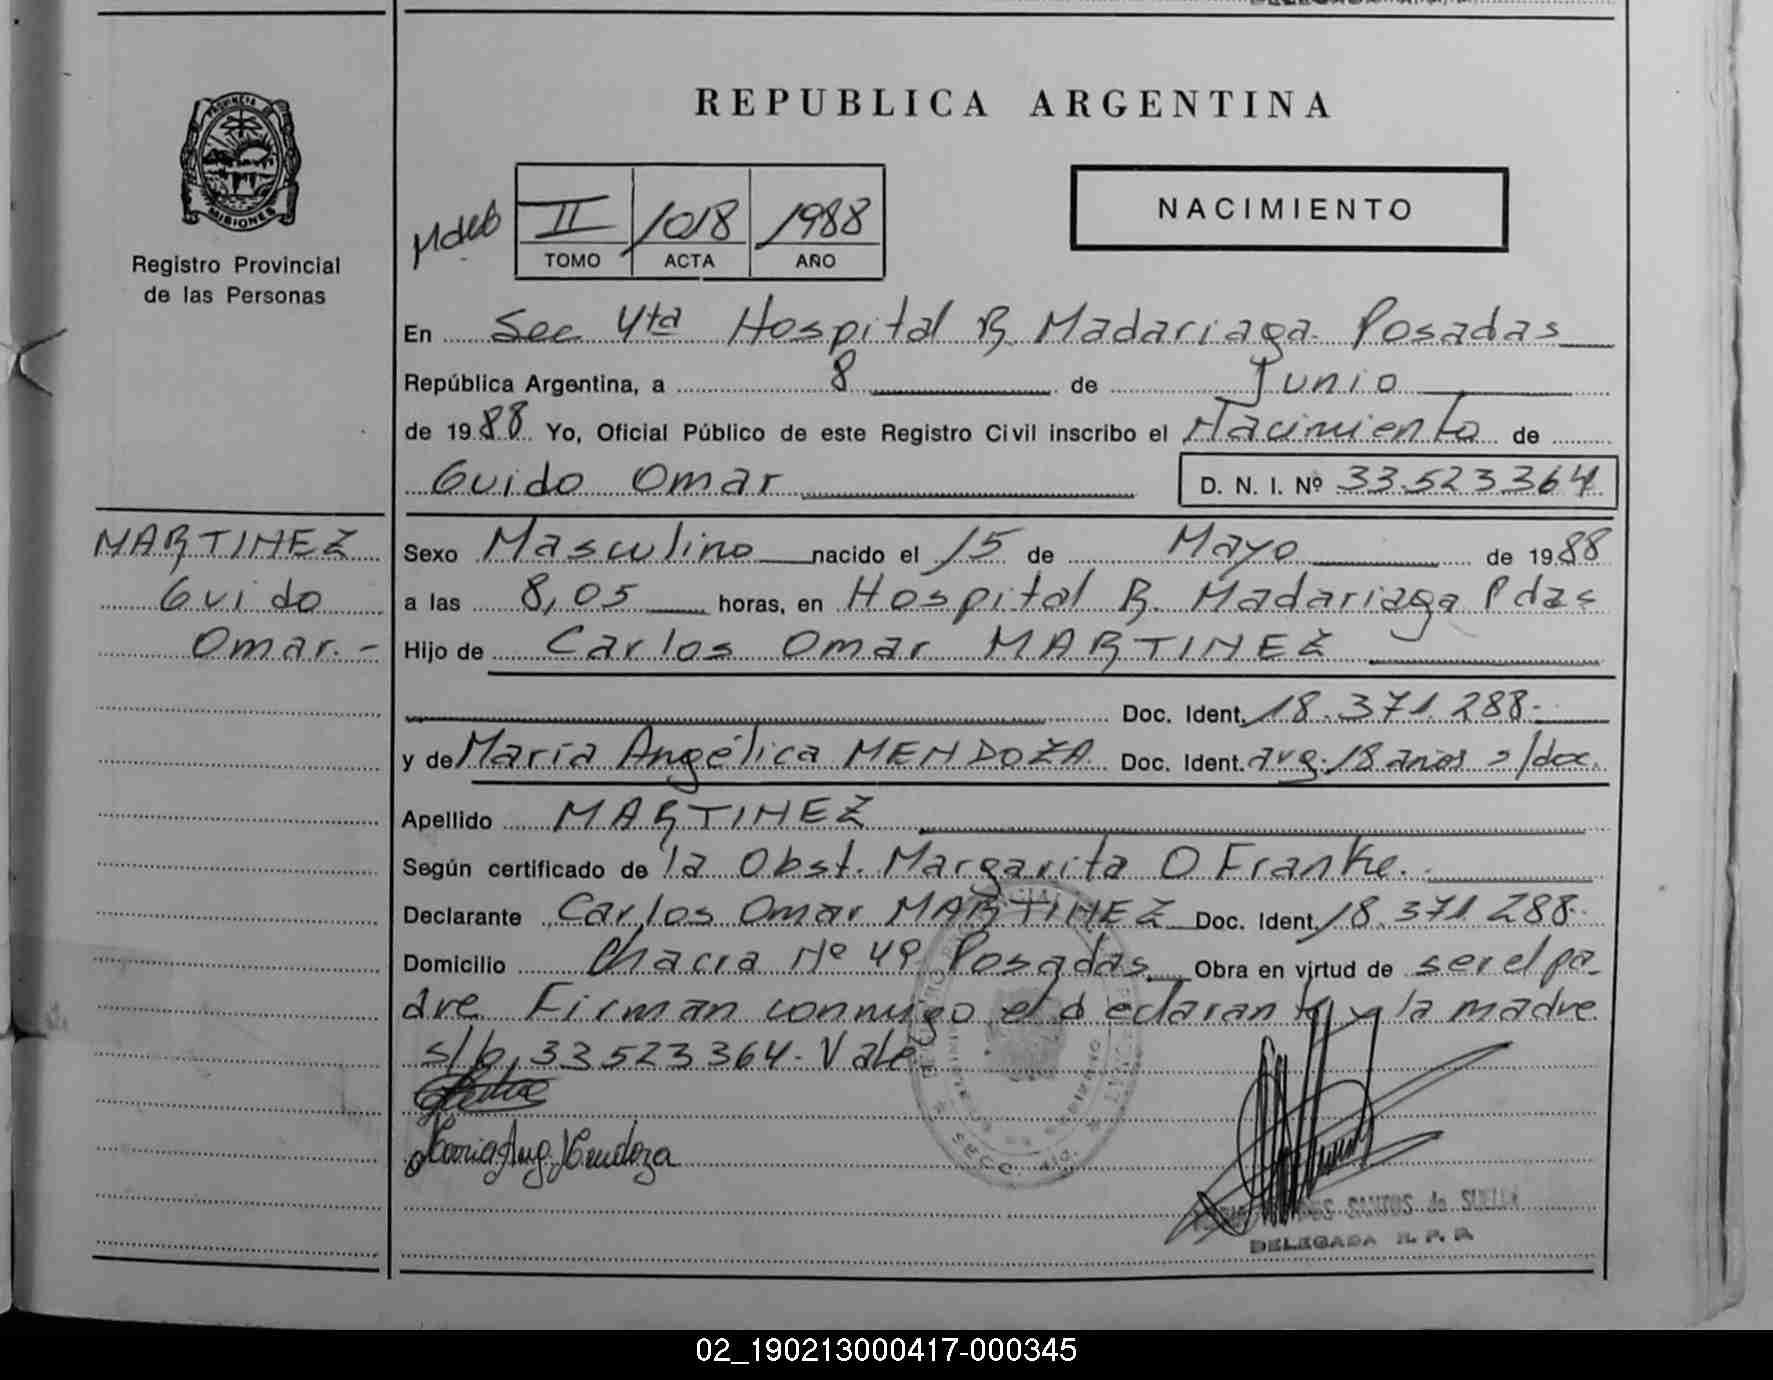 REPUBLICA ARGENTINA
PROVINCIA DE
MISIONES
Registro Provincial
de las Personas
II 1018 1988
TOMO ACTA AÑO
NACIMIENTO
En Sec 4ta Hospital R. Madariaga Posadas
República Argentina, a 8 de Junio
de 1988 Yo, Oficial Público de este Registro Civil inscribo el Nacimiento de
Guido Omar D. N. I. Nº 33.523.364
MARTINEZ
Guido
Omar.-
Sexo Masculino nacido el 15 de Mayo de 1988
a las 8,05 horas, en Hospital R. Madariaga Pdas
Hijo de Carlos Omar MARTINEZ
Doc. Ident. 18.371.288.-
y de María Angélica MENDOZA Doc. Ident. arg. 18 años s/doc.
Apellido MARTINEZ
Según certificado de la Obst. Margarita O Franke.
Declarante Carlos Omar MARTINEZ Doc. Ident. 18.371.288.-
Domicilio Chacra Nº 49 Posadas Obra en virtud de ser el pa-
dre Firman conmigo el declarante y la madre
s/b, 33523364. Vale
Maria Ang. Mendoza
SANTOS de
DELEGADA R. P. P.
02_190213000417-000345